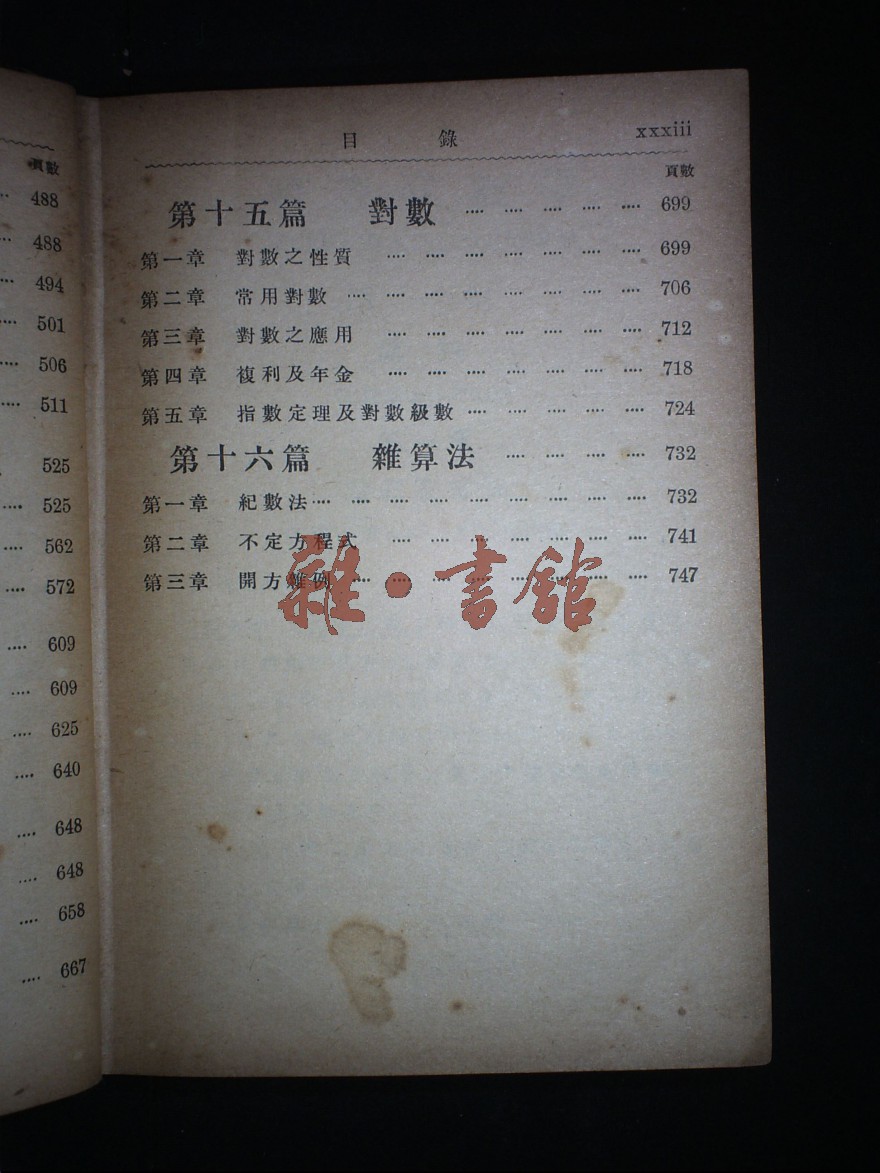 頁數
488
488
494
501
506
511
525
525
562
572
609
609
625
640
648
648
658
667
目錄 xxxiii
頁數
第十五篇 對數 699
第一章 對數之性質 699
第二章 常用對數 706
第三章 對數之應用 712
第四章 複利及年金 718
第五章 指數定理及對數級數 724
第十六篇 雜算法 732
第一章 紀數法 732
第二章 不定方程式 741
第三章 開方雜例 747
雜·書館